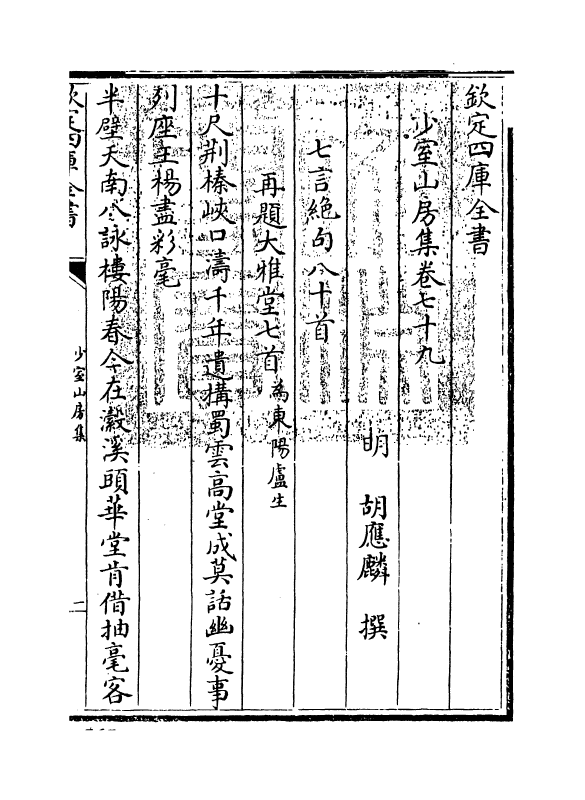 欽定四庫全書
少室山房集卷七十九
明 胡應麟 撰
七言絶句八十首
再題大雅堂七首為東陽盧生
十尺荆榛峽口濤千年遺搆蜀雲高堂成莫話幽憂事
列座王楊盡彩毫
半壁天南八詠樓陽春今在瀔溪頭華堂肯借抽毫客
欽定四庫全書
少室山房集